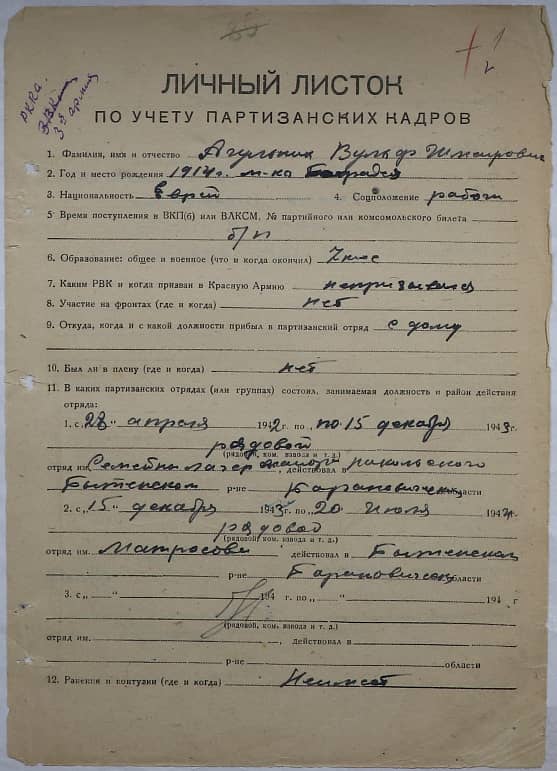 РККА.
З. ВК
38 армия
+ 1
ЛИЧНЫЙ ЛИСТОК
ПО УЧЕТУ ПАРТИЗАНСКИХ КАДРОВ
1. Фамилия, имя и отчество Агульник Вульф
2. Год и место рождения 1914 г. м-ко
3. Национальность Еврей 4. Соцположение рабочи
5. Время поступления в ВКП(б) или ВЛКСМ, № партийного или комсомольского билета
б/п
6. Образование: общее и военное (что и когда окончил)
7. Каким РВК и когда призван в Красную Армию непризывался
8. Участие на фронтах (где и когда) нет
9. Откуда, когда и с какой должности прибыл в партизанский отряд с дому
10. Был ли в плену (где и когда) нет
11. В каких партизанских отрядах (или группах) состоял, занимаемая должность и район действия
отряда:
1. с „28" апреля 1942 г. по „ по 15 декабря 1943 г.
рядовой
(рядовой, ком. взвода и т. д.)
отряд им. Семейны лагер действовал в
Бытенском р-не Барановичск области
2. с „15" декабря 1943 г. по „20 Июля 1944 г.
рядовой
(рядовой, ком. взвода и т. д.)
отряд им. Матросова действовал в Бытенском
р-не Барановичск области
3. с „ " 194 г. по „ " 194 г
(рядовой, ком. взвода и т. д.)
отряд им. , действовал в
р-не области
12. Ранения и контузии (где и когда) Неимеет